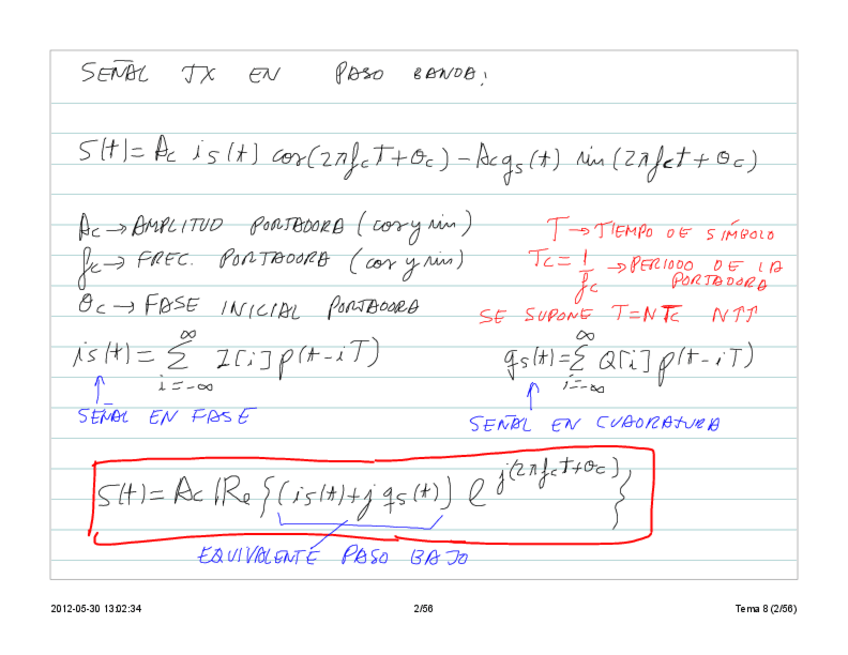 SEÑAL TX EN PASO BANDA:
S(t) = Ac is(t) cos(2πfct+θc) - Ac qs(t) sin(2πfct+θc)
Ac → AMPLITUD PORTADORA (cos y sin)
fc → FREC. PORTADORA (cos y sin)
θc → FASE INICIAL PORTADORA
T → TIEMPO DE SÍMBOLO
Tc = 1/fc → PERIODO DE LA PORTADORA
SE SUPONE T=NTc N↑↑
is(t) = ∑_{i=-∞}^{∞} I[i] p(t-iT)
qs(t) = ∑_{i=-∞}^{∞} Q[i] p(t-iT)
SEÑAL EN FASE
SEÑAL EN CUADRATURA
S(t) = Ac Re{(is(t)+j qs(t)) e^{j(2πfct+θc)}}
EQUIVALENTE PASO BAJO
2012-05-30 13:02:34 2/56 Tema 8 (2/56)